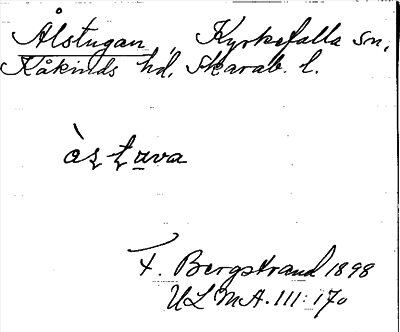 Ålstugan, Kyrkefalla sn,
Kåkinds hd, Skarab. l.
òsţuva
F. Bergstrand 1898
ULMA. 111:170